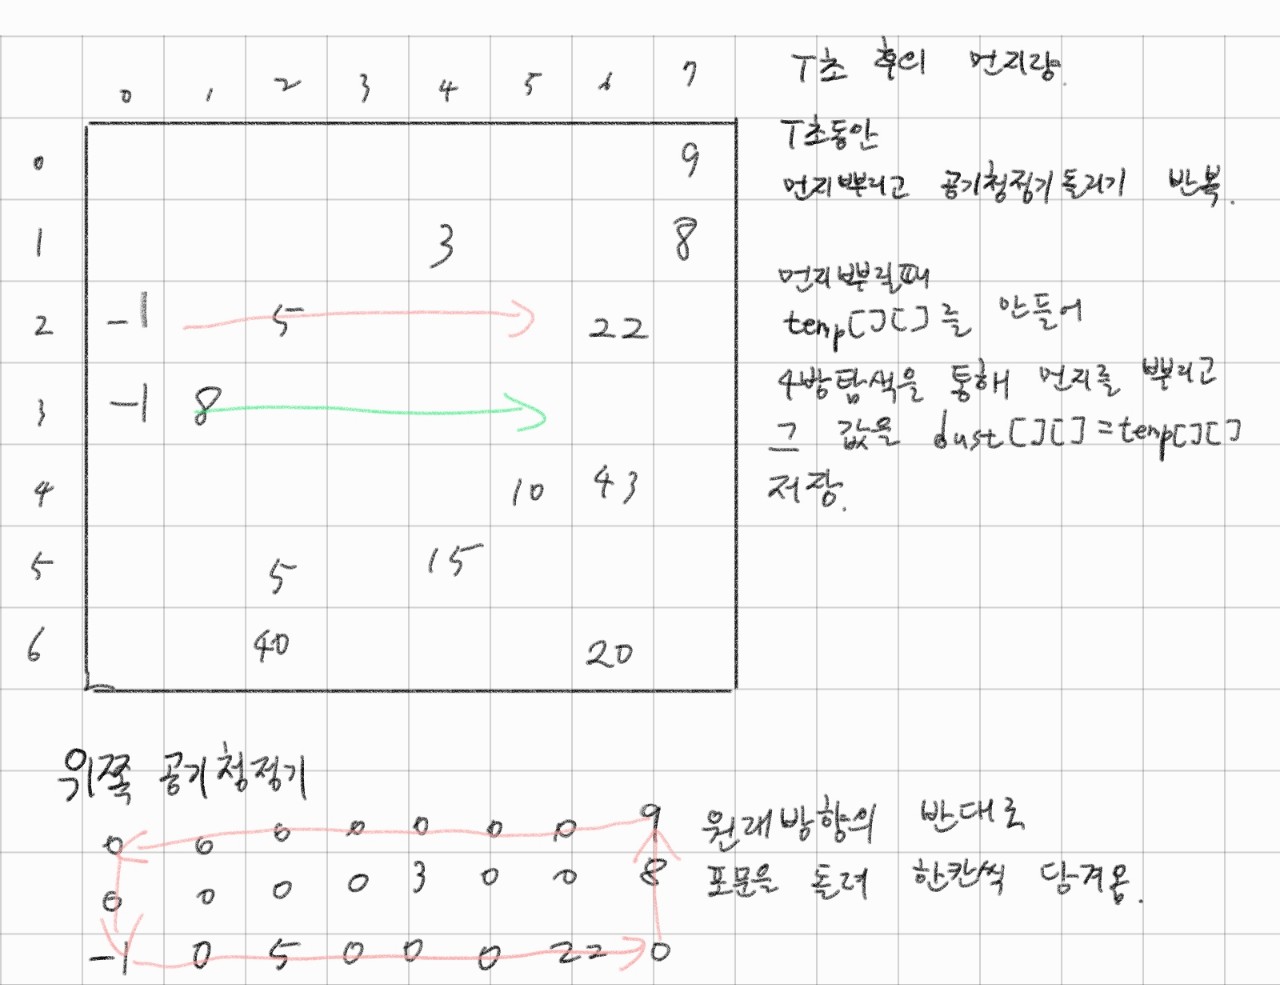 0 1 2 3 4 5 6 7
0 9
1 3 8
2 -1 5 22
3 -1 8
4 10 43
5 5 15
6 40 20
T초 후의 먼지량.
T초동안
먼지뿌리고 공기청정기돌리기 반복.
먼지뿌릴때
temp[][]를 만들어
4방탐색을 통해 먼지를 뿌리고
그 값을 dust[][]=temp[][]
저장.
위쪽 공기청정기
0 0 0 0 0 0 0 9
0 0 0 0 3 0 0 8
-1 0 5 0 0 0 22 0
원래방향의 반대로
포문을 돌려 한칸씩 당겨옴.